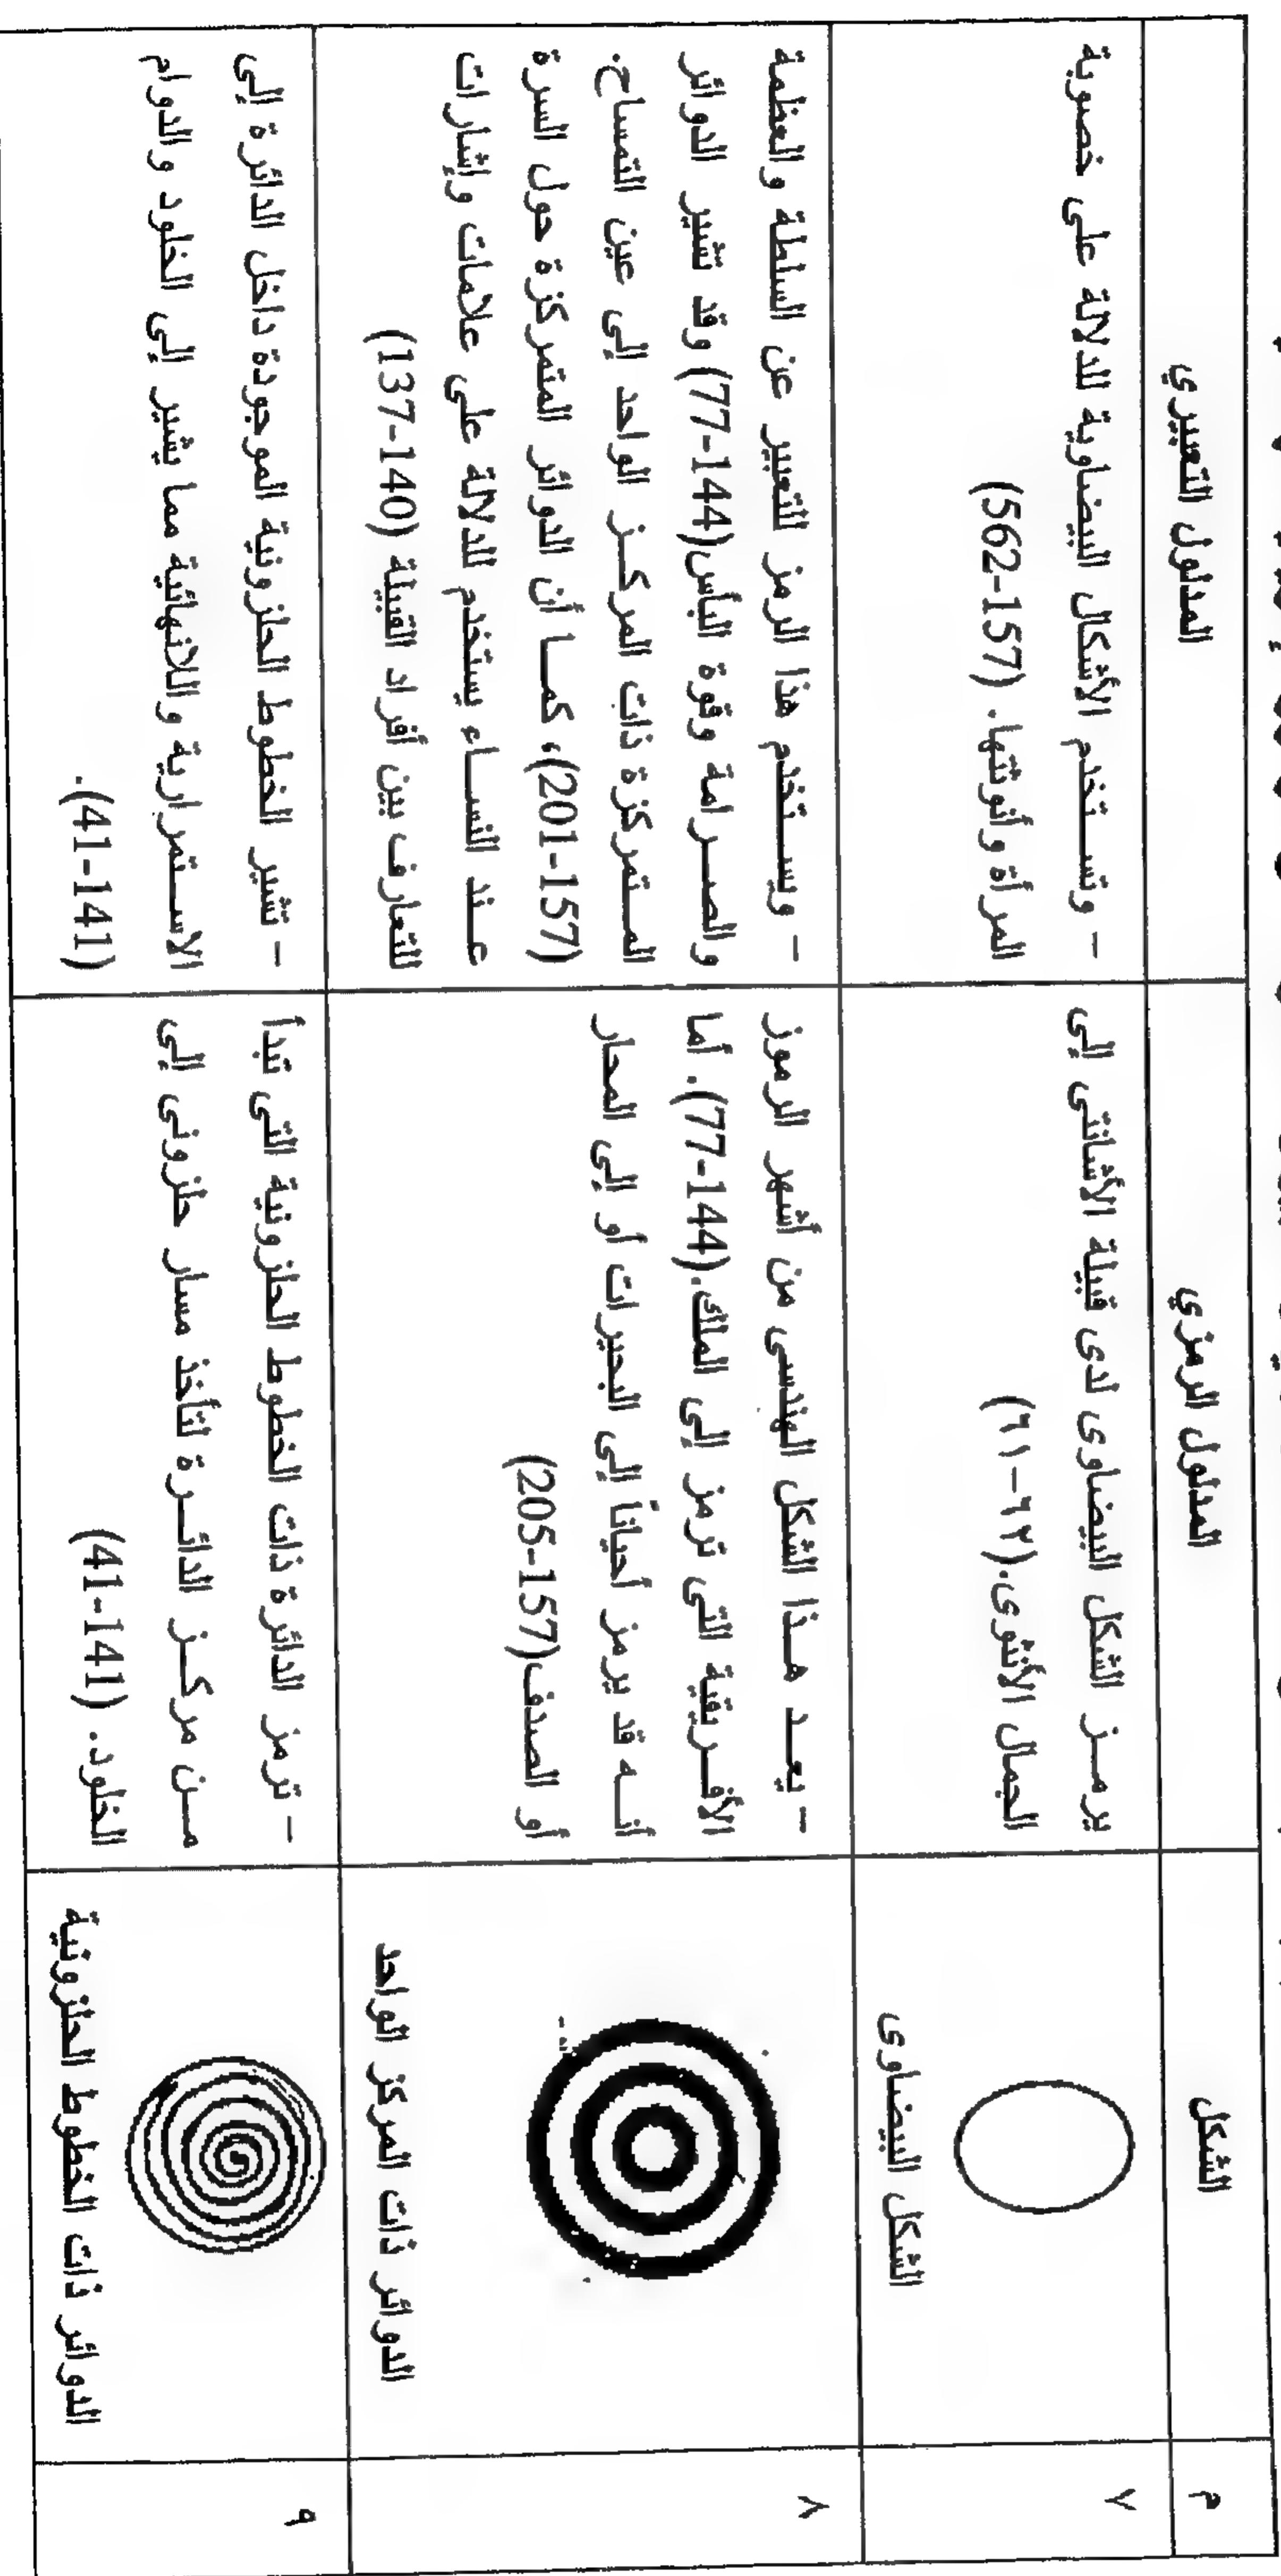 م
الشكل
المدلول الرمزي
المدلول التعبيري
٧
الشكل البيضاوى
يرمـــز الشكل البيضاوى لدى قبيلة الأشانتى إلى
الجمال الأنثوى.(٦٢-٦١)
– وتســـتخدم الأشكال البيضاوية للدلالة على خصوبة
المرأة وأنوثتها. (157-562)
٨
الدوائر ذات المركز الواحد
– يعـــد هـــذا الشكل الهندسى من أشهر الرموز
الأفـــريقية التى ترمز إلى الملك.(144-77). أما
أنـــه قد يرمز أحياناً إلى البحيرات أو إلى المحار
أو الصدف(157-205)
– ويســـتخدم هذا الرمز للتعبير عن السلطة والعظمة
والصـــرامة وقوة البأس(144-77) وقد تشير الدوائر
المـــتمركزة ذات المركـــز الواحد إلى عين التمساح.
(157-201)، كمـــا أن الدوائر المتمركزة حول السرة
عـــند النســـاء يستخدم للدلالة على علامات وإشارات
للتعارف بين أفراد القبيلة (140-137)
٩
الدوائر ذات الخطوط الحلزونية
– ترمز الدائرة ذات الخطوط الحلزونية التى تبدأ
مـــن مركـــز الدائـــرة لتأخذ مسار حلزونى إلى
الخلود. (141-41)
– تشير الخطوط الحلزونية الموجودة داخل الدائرة إلى
الاســـتمرارية واللانهائية مما يشير إلى الخلود والدوام
(141-41).